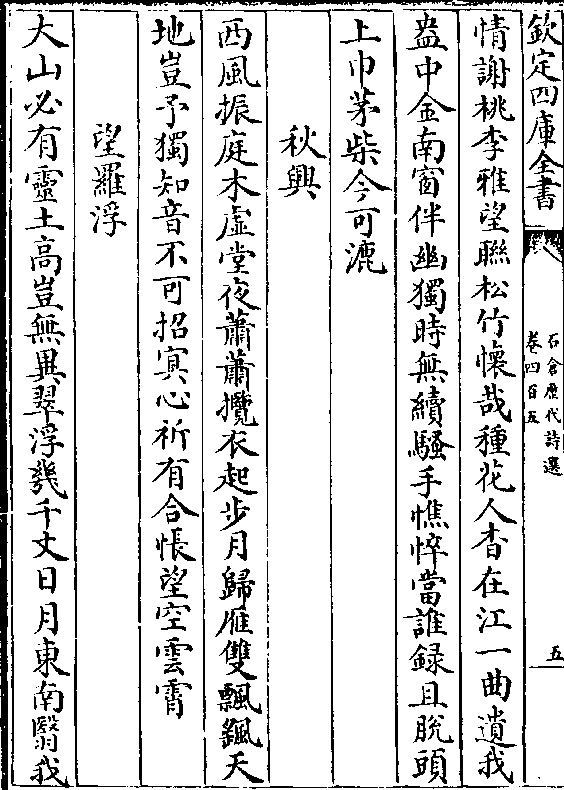 欽定四庫全書
石倉歷代詩選
卷四百五
五
情謝桃李雅望聯松竹懷哉種花人杳在江一曲遺我
盎中金南窗伴幽獨時無續騷手憔悴當誰録且脫頭
上巾茅柴今可漉
秋興
西風振庭木虛堂夜蕭蕭攬衣起步月歸雁雙飄飖天
地豈予獨知音不可招冥心祈有合悵望空雲霄
望羅浮
大山必有靈土高豈無異翠浮幾千丈日月東南翳我